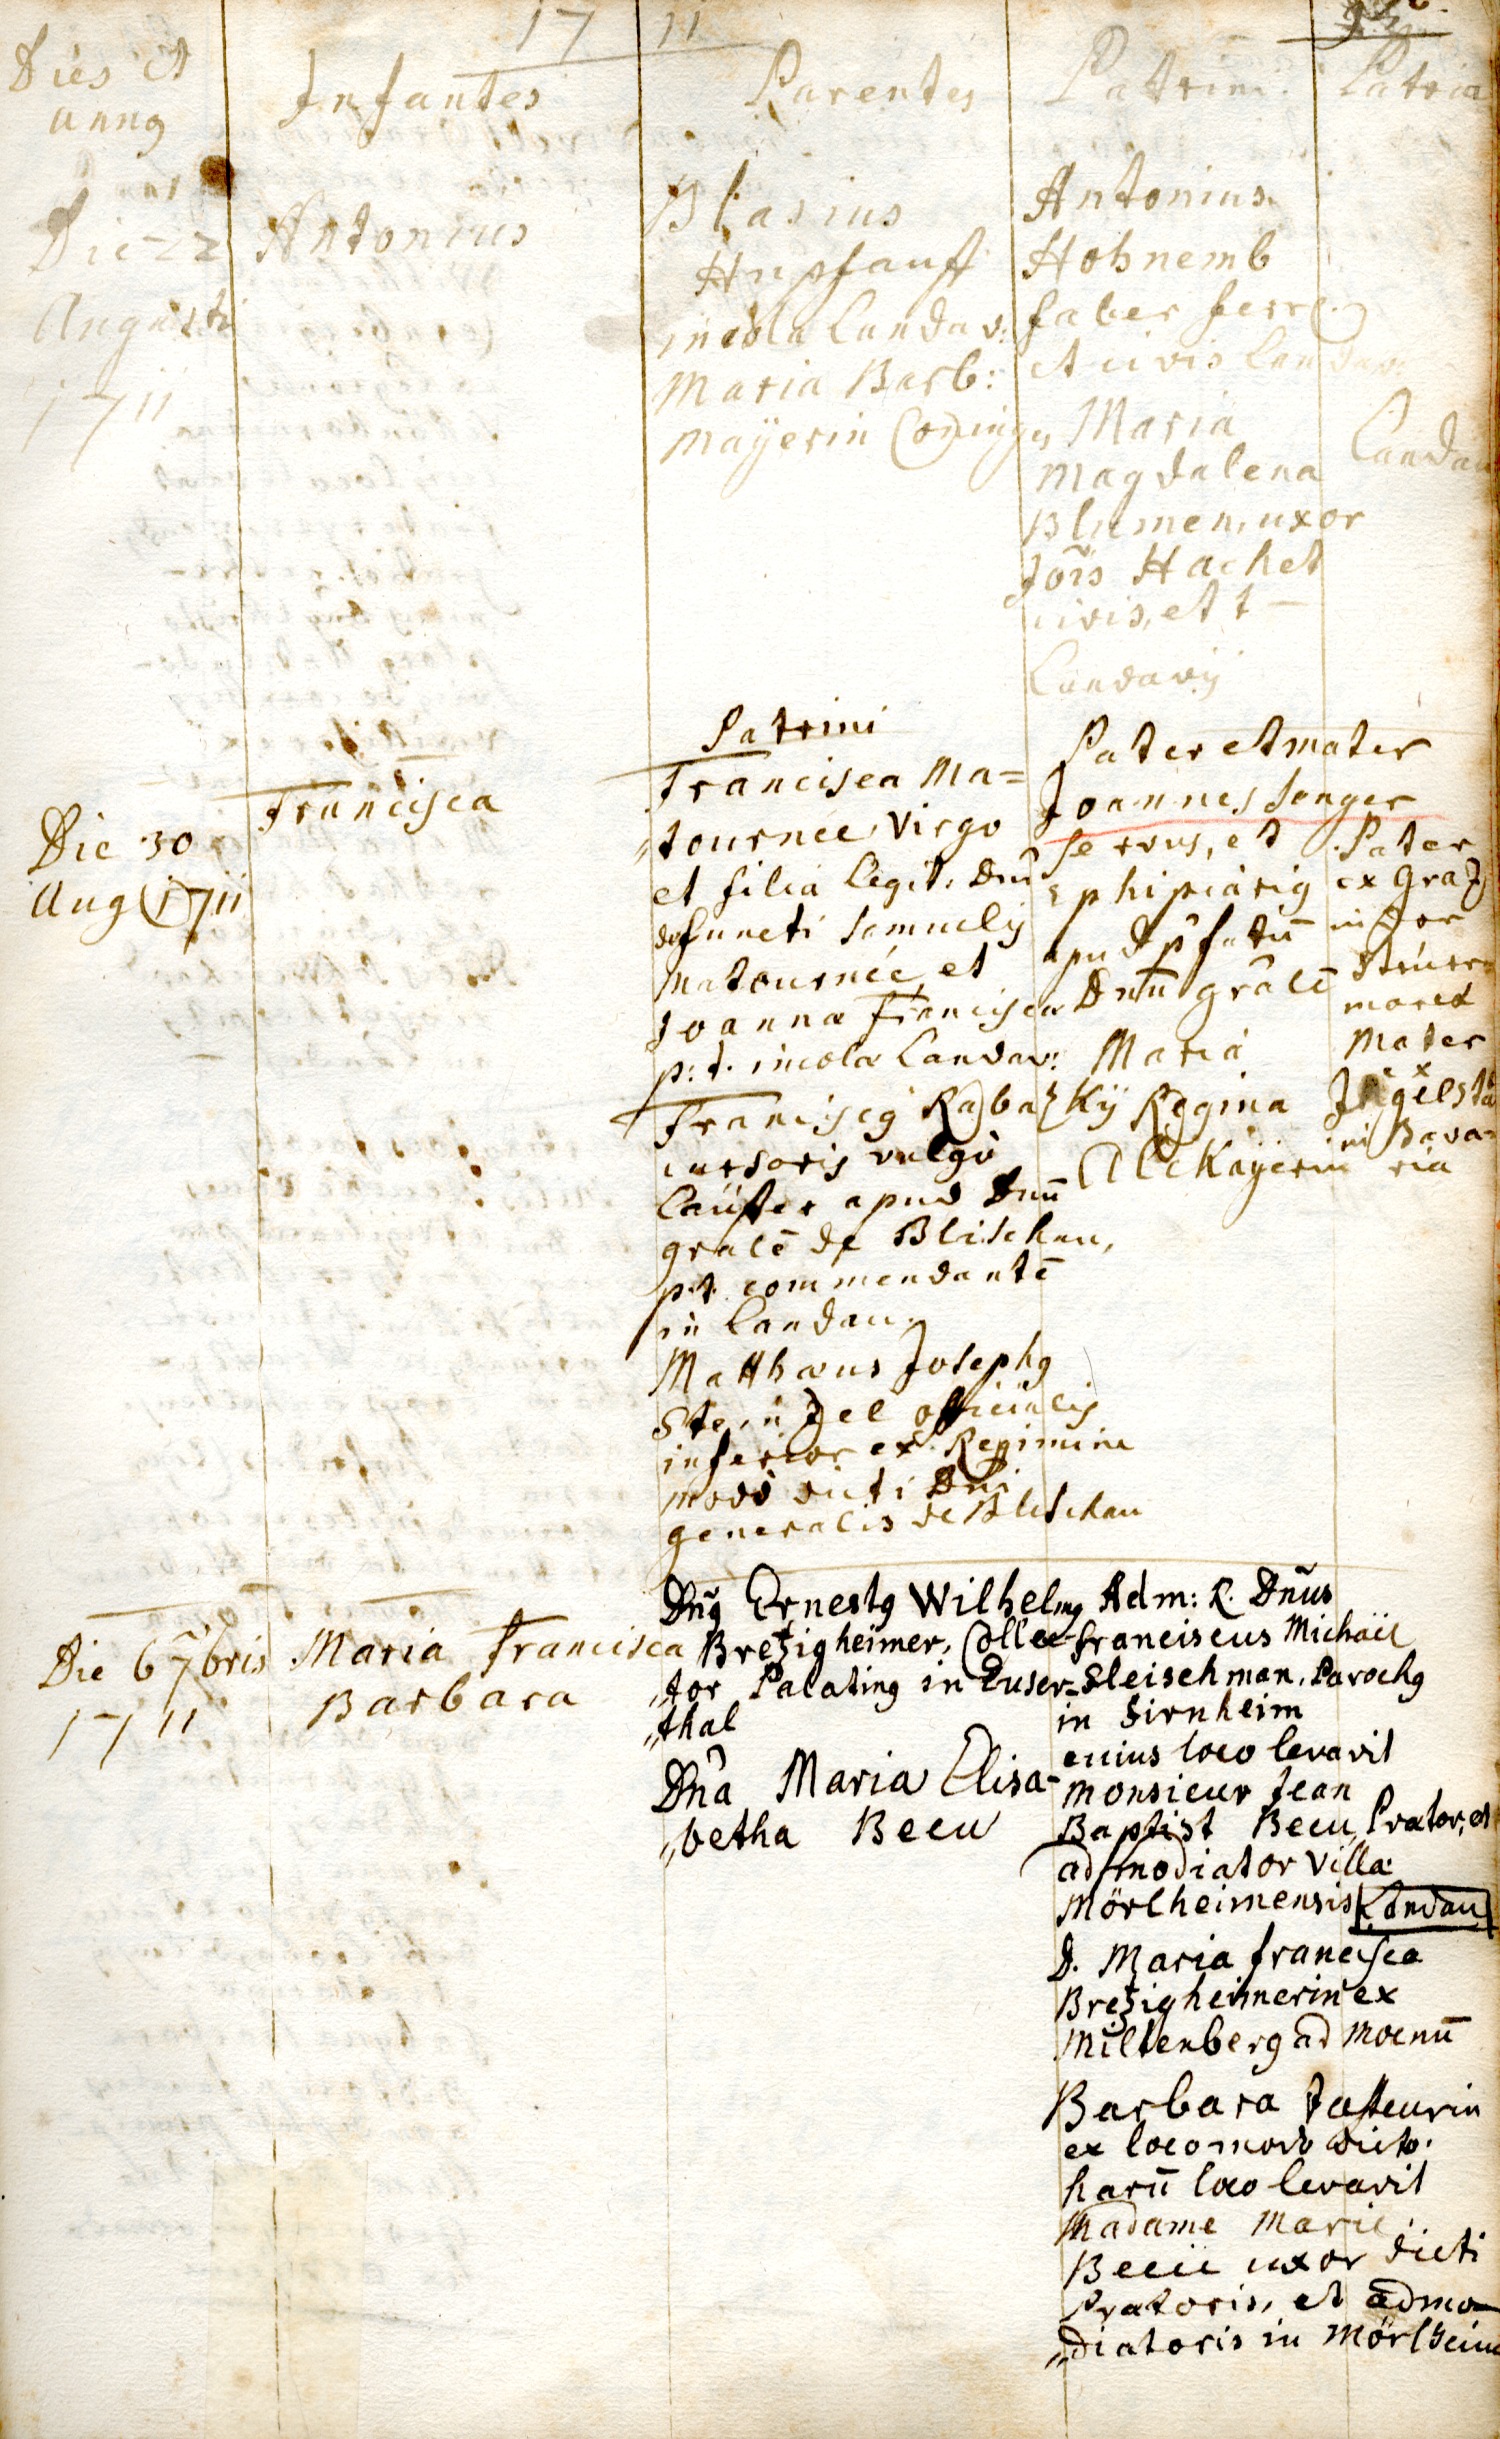 17 11
Dies et
anng
Infantes
Parentes
Patrini
Patria
Die 22
Augusti
1711
Antonius
Blasius
Hupfauff
incola Landav:
Maria Barb:
Mayerin Conjuges
Antonius
Hohnemb
faber ferr
et civis Landav:
Maria
Magdalena
Blumen, uxor
Jois Hachet
civis, et t–
Landavij
Landau
Die 30
Aug 1711
Francisca
Patrini
Francisca Ma=
„tournée Virgo
et filia legit: Dni
defuncti Samuelis
Matournée, et
Joannæ Francisca
p:t. incolæ Landav:
Franciscg Rabatz Ky
cursoris vulgo
Laüffer apud Dnū
gralē de Blischau,
p.t. commendantē
in Landau.
Matthæus Josephg
Steinzel officialis
inferior ex Regimine
modò dicti Dni
generalis de Blischau
Pater et mater
Joannes Songer
servus, et
ephipiarig
apud p̄fatū
Dnū gralē
Maria
Regina
Alckaÿerin
Pater
ex Graz
in
mater
ex
in Bava=
ria
Die 6 7bris
1711
Maria Francisca
Barbara
Dng Ernestg Wilhelmg
Bretzigheimer, Collec-
„tor Palating in Euser=
„thal
Dna Maria Elisa-
„betha Becu
Adm: R. Dnus
franciscus Michäel
Fleischman, Parochg
in Firnheim
cuius loco levavit
Monsieur Jean
Baptist Becu, Prætor, et
admodiator villæ
Mörlheimensis Landau
D. Maria francisca
Bretzigheimerin ex
Miltenberg ad Moenū
Barbara
ex loco modo dicto.
harū loco levavit
Madame Marie
Becü uxor dicti
Prætoris, et admo-
„diatoris in Mörlheim